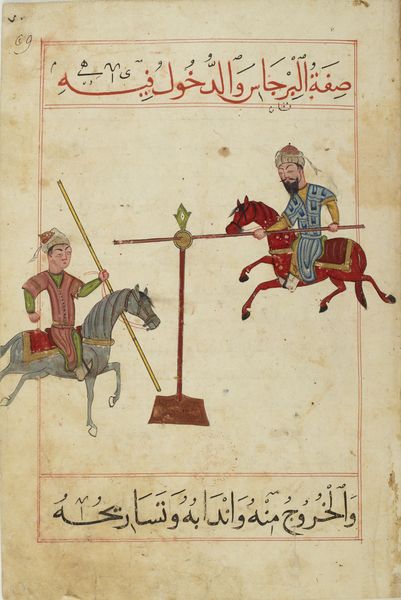 ٧٠
69
صِفَةُ الْبِرْجَاسِ وَالدُّخُولُ فِيهِ
وَالْخُرُوجُ مِنْهُ وَانْدَابُهُ وَتَسَارِيحُهُ